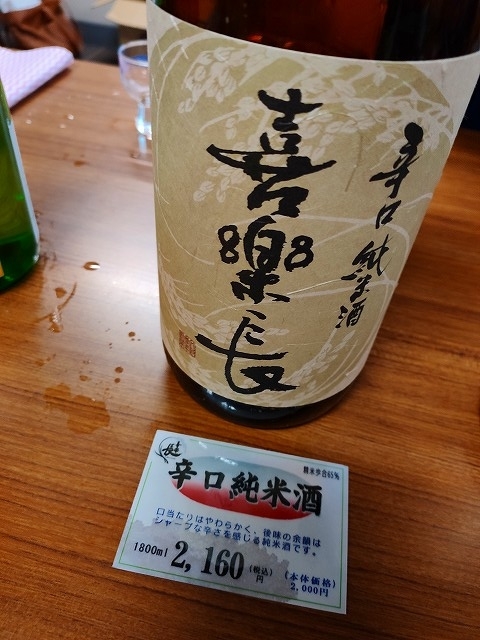 喜樂長
辛口純米酒
精米歩合65%
辛口純米酒
口当たりはやわらかく、後味の余韻は
シャープな辛さを感じる純米酒です。
1800ml 2,160円 (税込) (本体価格)
2,000円